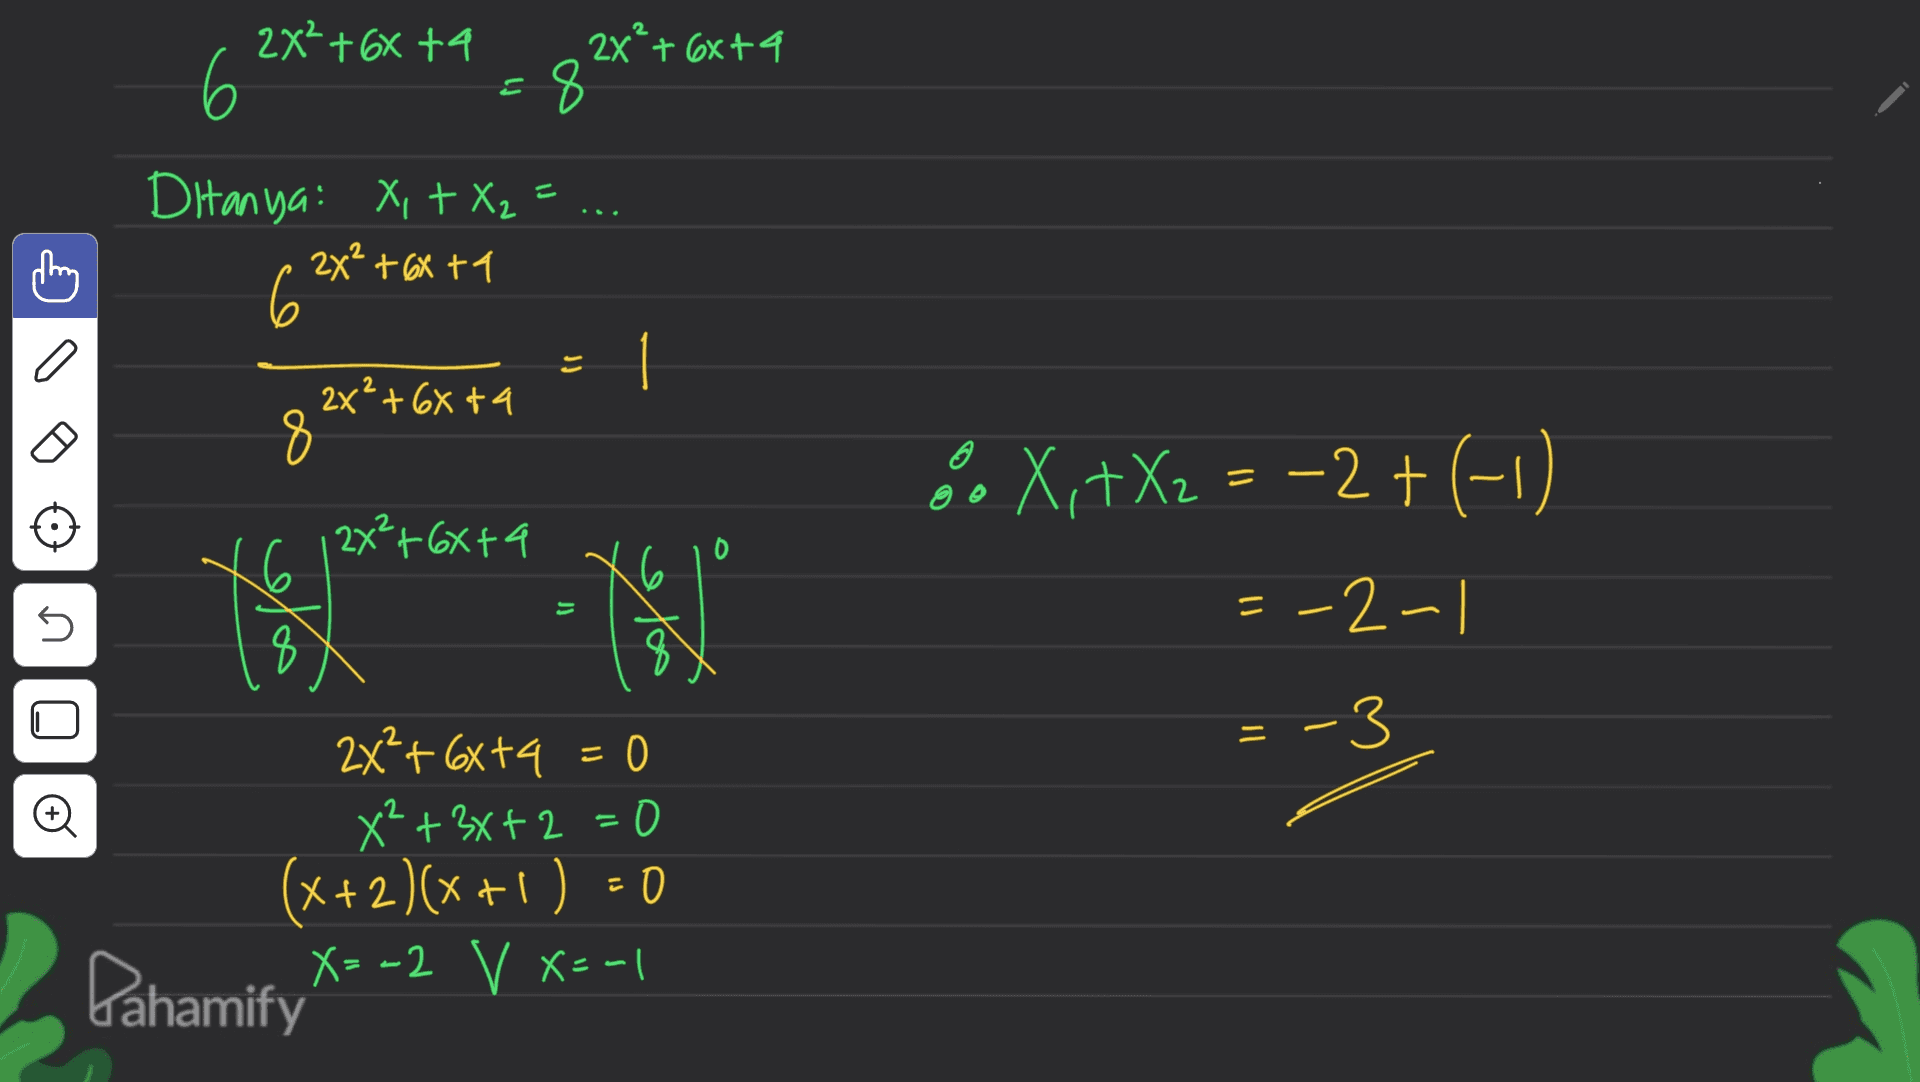 6^(2x²+6x+4) = 8^(2x²+6x+4)
Ditanya: x₁ + x₂ = ...
6^(2x²+6x+4)
——— = 1
8^(2x²+6x+4)
(6/8)^(2x²+6x+4) = (6/8)^0
2x²+6x+4 = 0
x²+3x+2 = 0
(x+2)(x+1) = 0
x=-2 V x=-1
∴ x₁+x₂ = -2 + (-1)
= -2-1
= -3
Pahamify